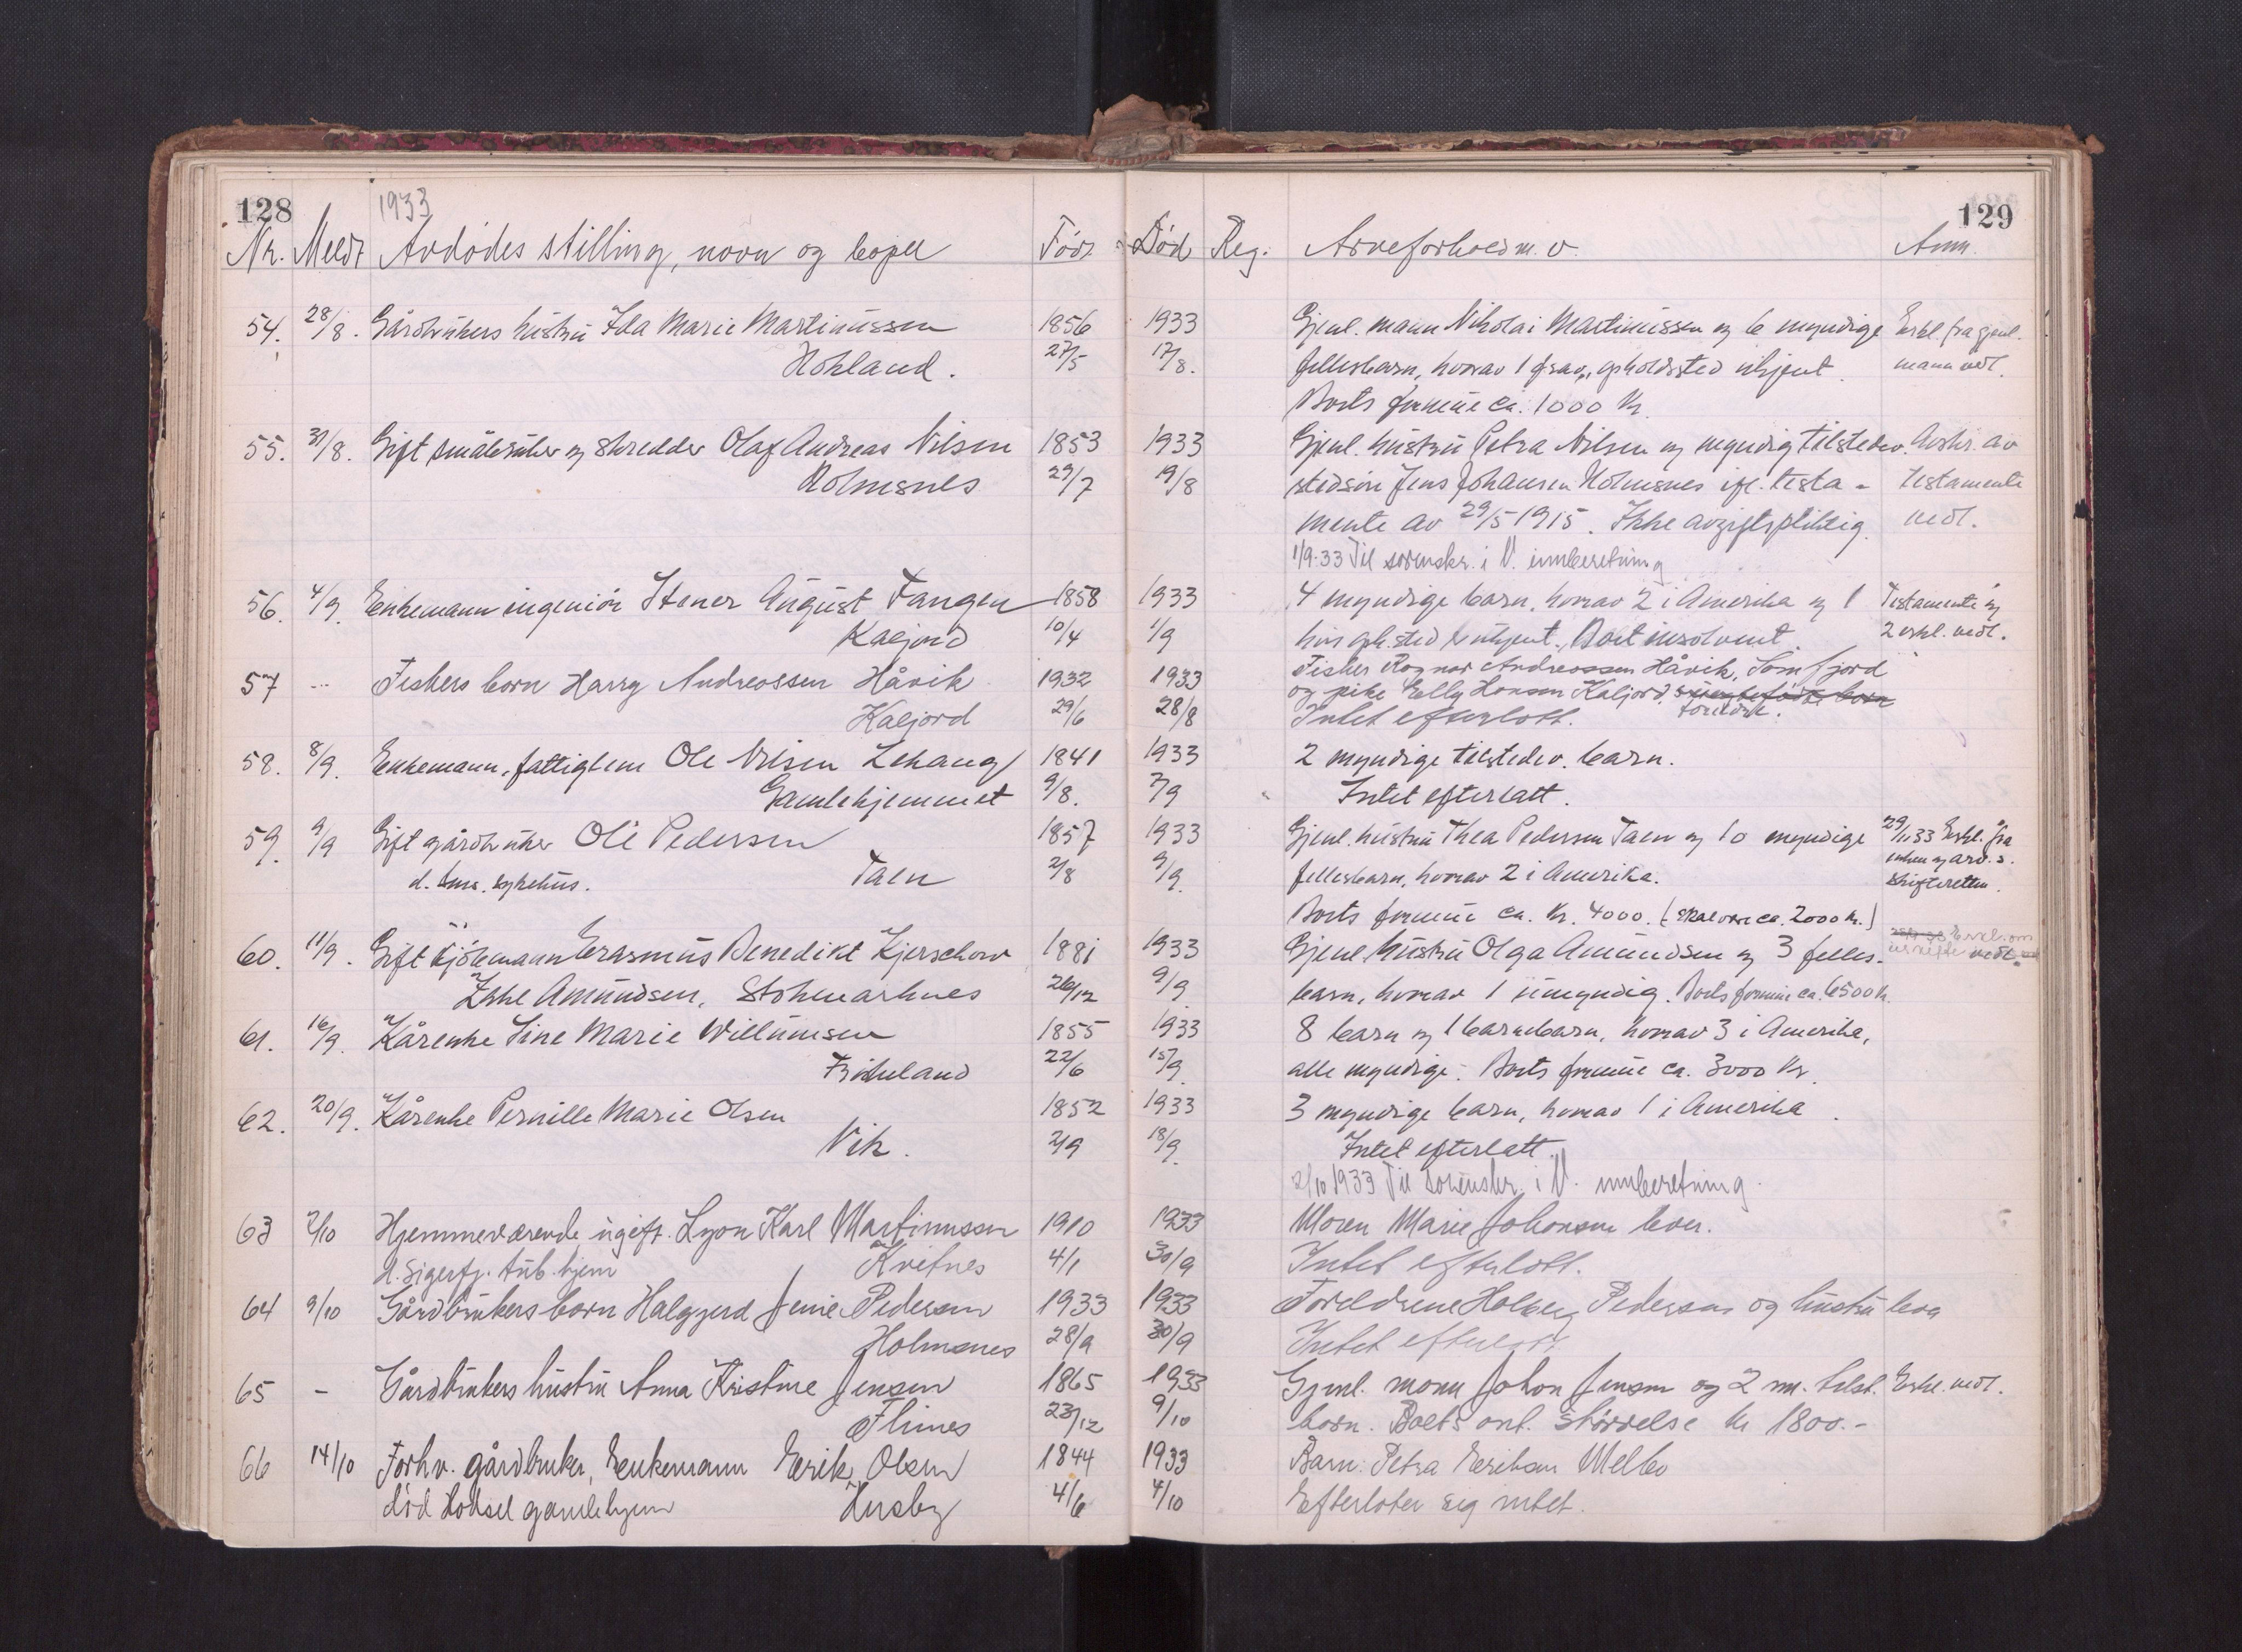 128
1933
129
Nr. Meldt Avdødes stilling, navn og bopel Født Død Reg. Arveforhold m. v. Anm.
54. 28/8. Gårdbrukers hustru Ida Marie Martinussen 1856 1933 Gjenl. mann Nikolai Martinussen og 6 myndige Erkl. fra gjenl.
Hokland. 27/5 17/8. fellesbarn, hvorav 1 frav., opholdssted ukjent. mann vedl.
Boets formue ca. 1000 Kr.
55. 31/8. Gift småbruker og skredder Olaf Andreas Nilsen 1853 1933 Gjenl. hustru Petra Nilsen og myndig tilstedev. Avskr. av
Holmsnes 29/7 19/8 stedsøn Jens Johansen Holmsnes ifl. testa- testamente
mente av 29/5 1915. Ikke avgiftspliktig. vedl.
1/9-33 Til sorenskr. i V. innberetning
56. 4/9. Enkemann ingeniør Stener August Fangen 1858 1933 4 myndige barn, hvorav 2 i Amerika og 1 Testamente og
Kaljord 10/4 1/9 hvis oph.sted er ukjent. Boet insolvent. 2 erkl. vedl.
57 -"- Fiskers barn Harry Andreassen Håvik 1932 1933 Fisker Ragnar Andreassen Håvik,
Kaljord 29/6 28/8 og pike Elly Hansen Kaljord foreldre.
Intet efterlatt.
58. 8/9. Enkemann, fattiglem Ole Nilsen Lekang 1841 1933 2 myndige tilstedev. barn.
Gamlehjemmet 9/8. 7/9 Intet efterlatt.
59. 9/9 Gift gårdbruker Ole Pedersen 1857 1933 Gjenl. hustru Thea Pedersen Taen og 10 myndige 29/11 33 Erkl. fra
d. sykehus. Taen 2/8 9/9. fellesbarn, hvorav 2 i Amerika. enken og arv. s.
skifteretten.
Boets formue ca. Kr. 4000. (skal være ca. 2000 kr.)
60. 11/9. Gift kjøbmann Erasmus Benedikt Kjerschow 1881 1933 Gjenl. hustru Olga Amundsen og 3 felles- Erkl. om
Zahl Amundsen, Stokmarknes 26/12 9/9 barn, hvorav 1 umyndig. Boets formue ca. 6500 Kr. uskifte vedl.
61. 16/9. Kårenke Sine Marie Willumsen 1855 1933 8 barn og 1 barnebarn, hvorav 3 i Amerika,
Frøskeland 22/6 15/9. alle myndige. Boets formue ca. 3000 Kr.
62. 20/9. Kårenke Pernille Marie Olsen 1852 1933 3 myndige barn, hvorav 1 i Amerika.
Vik. 2/9 18/9. Intet efterlatt.
2/10 1933 Til sorenskr. i V. innberetning.
63 2/10 Hjemmeværende ugift. Lyon Karl Martinussen 1910 1933 Moren Marie Johansen lever.
d. Sigerfj. tub. hjem Kvitnes 4/1 30/9 Intet efterlatt.
64 9/10 Gårdbrukers barn Halgjerd Jenie Pedersen 1933 1933 Foreldrene Holberg Pedersen og hustru leva
Holmsnes 28/9 30/9 Intet efterlatt
65 - Gårdbrukers hustru Anna Kristine Jensen 1865 1933 Gjenl. mann Johan Jensen og 2 m. tilst. Erkl. vedl.
Flines 23/12 9/10 barn. Boets ant. størrelse kr 1800.-
66 14/10 Forhv. gårdbruker, Enkemann Erik Olsen 1844 1933 Barn: Petra Eriksen Melbo
død Hadsel gamlehjem Husby 4/6 4/10 Efterlater sig intet.